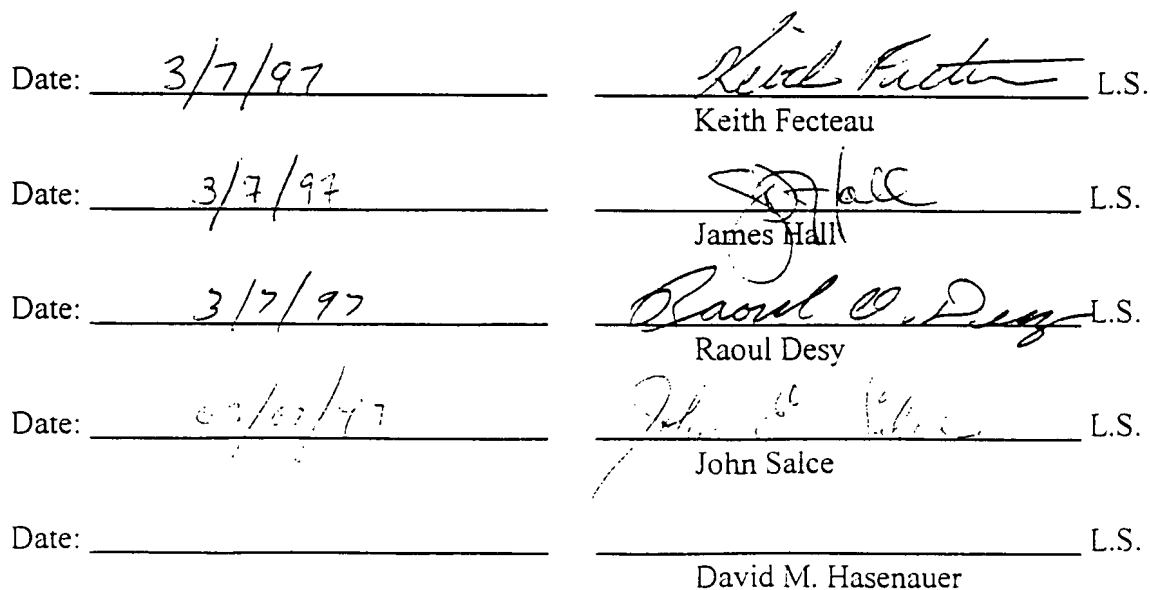 Date: 3/7/97 Keith Fecteau L.S.
Keith Fecteau
Date: 3/7/97 J Hall L.S.
James Hall
Date: 3/7/97 Raoul O. Desy L.S.
Raoul Desy
Date: 03/07/97 John Salce L.S.
John Salce
Date: L.S.
David M. Hasenauer